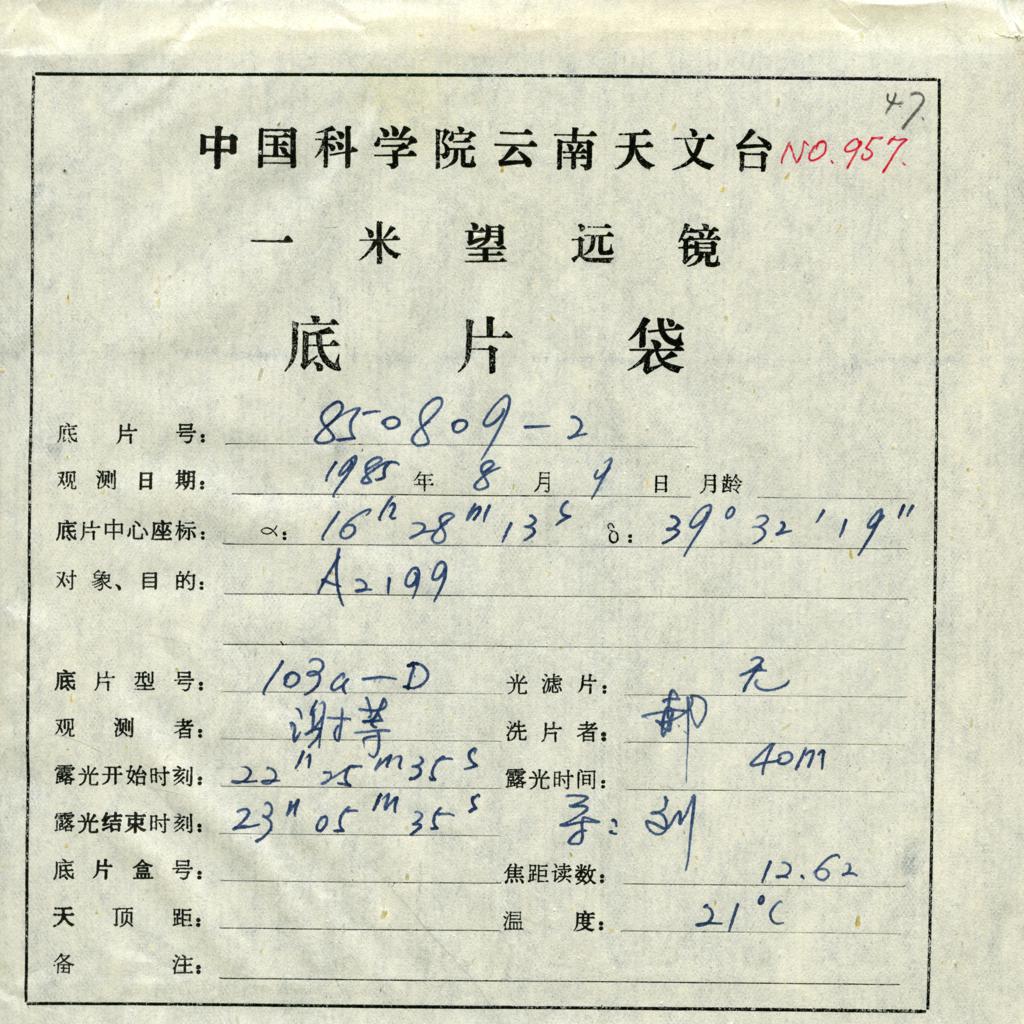 47.
中国科学院云南天文台 NO.957.
一米望远镜
底片袋
底片号: 850809-2
观测日期: 1985年8月9日 月龄
底片中心座标: α: 16h 28m 13s δ: 39° 32' 19"
对象、目的: A2199
底片型号: 103a-D 光滤片: 无
观测者: 谢等 洗片者:
露光开始时刻: 22h 25m 35s 露光时间: 40m
露光结束时刻: 23h 05m 35s 导: 刘
底片盒号: 焦距读数: 12.62
天顶距: 温度: 21°C
备注: